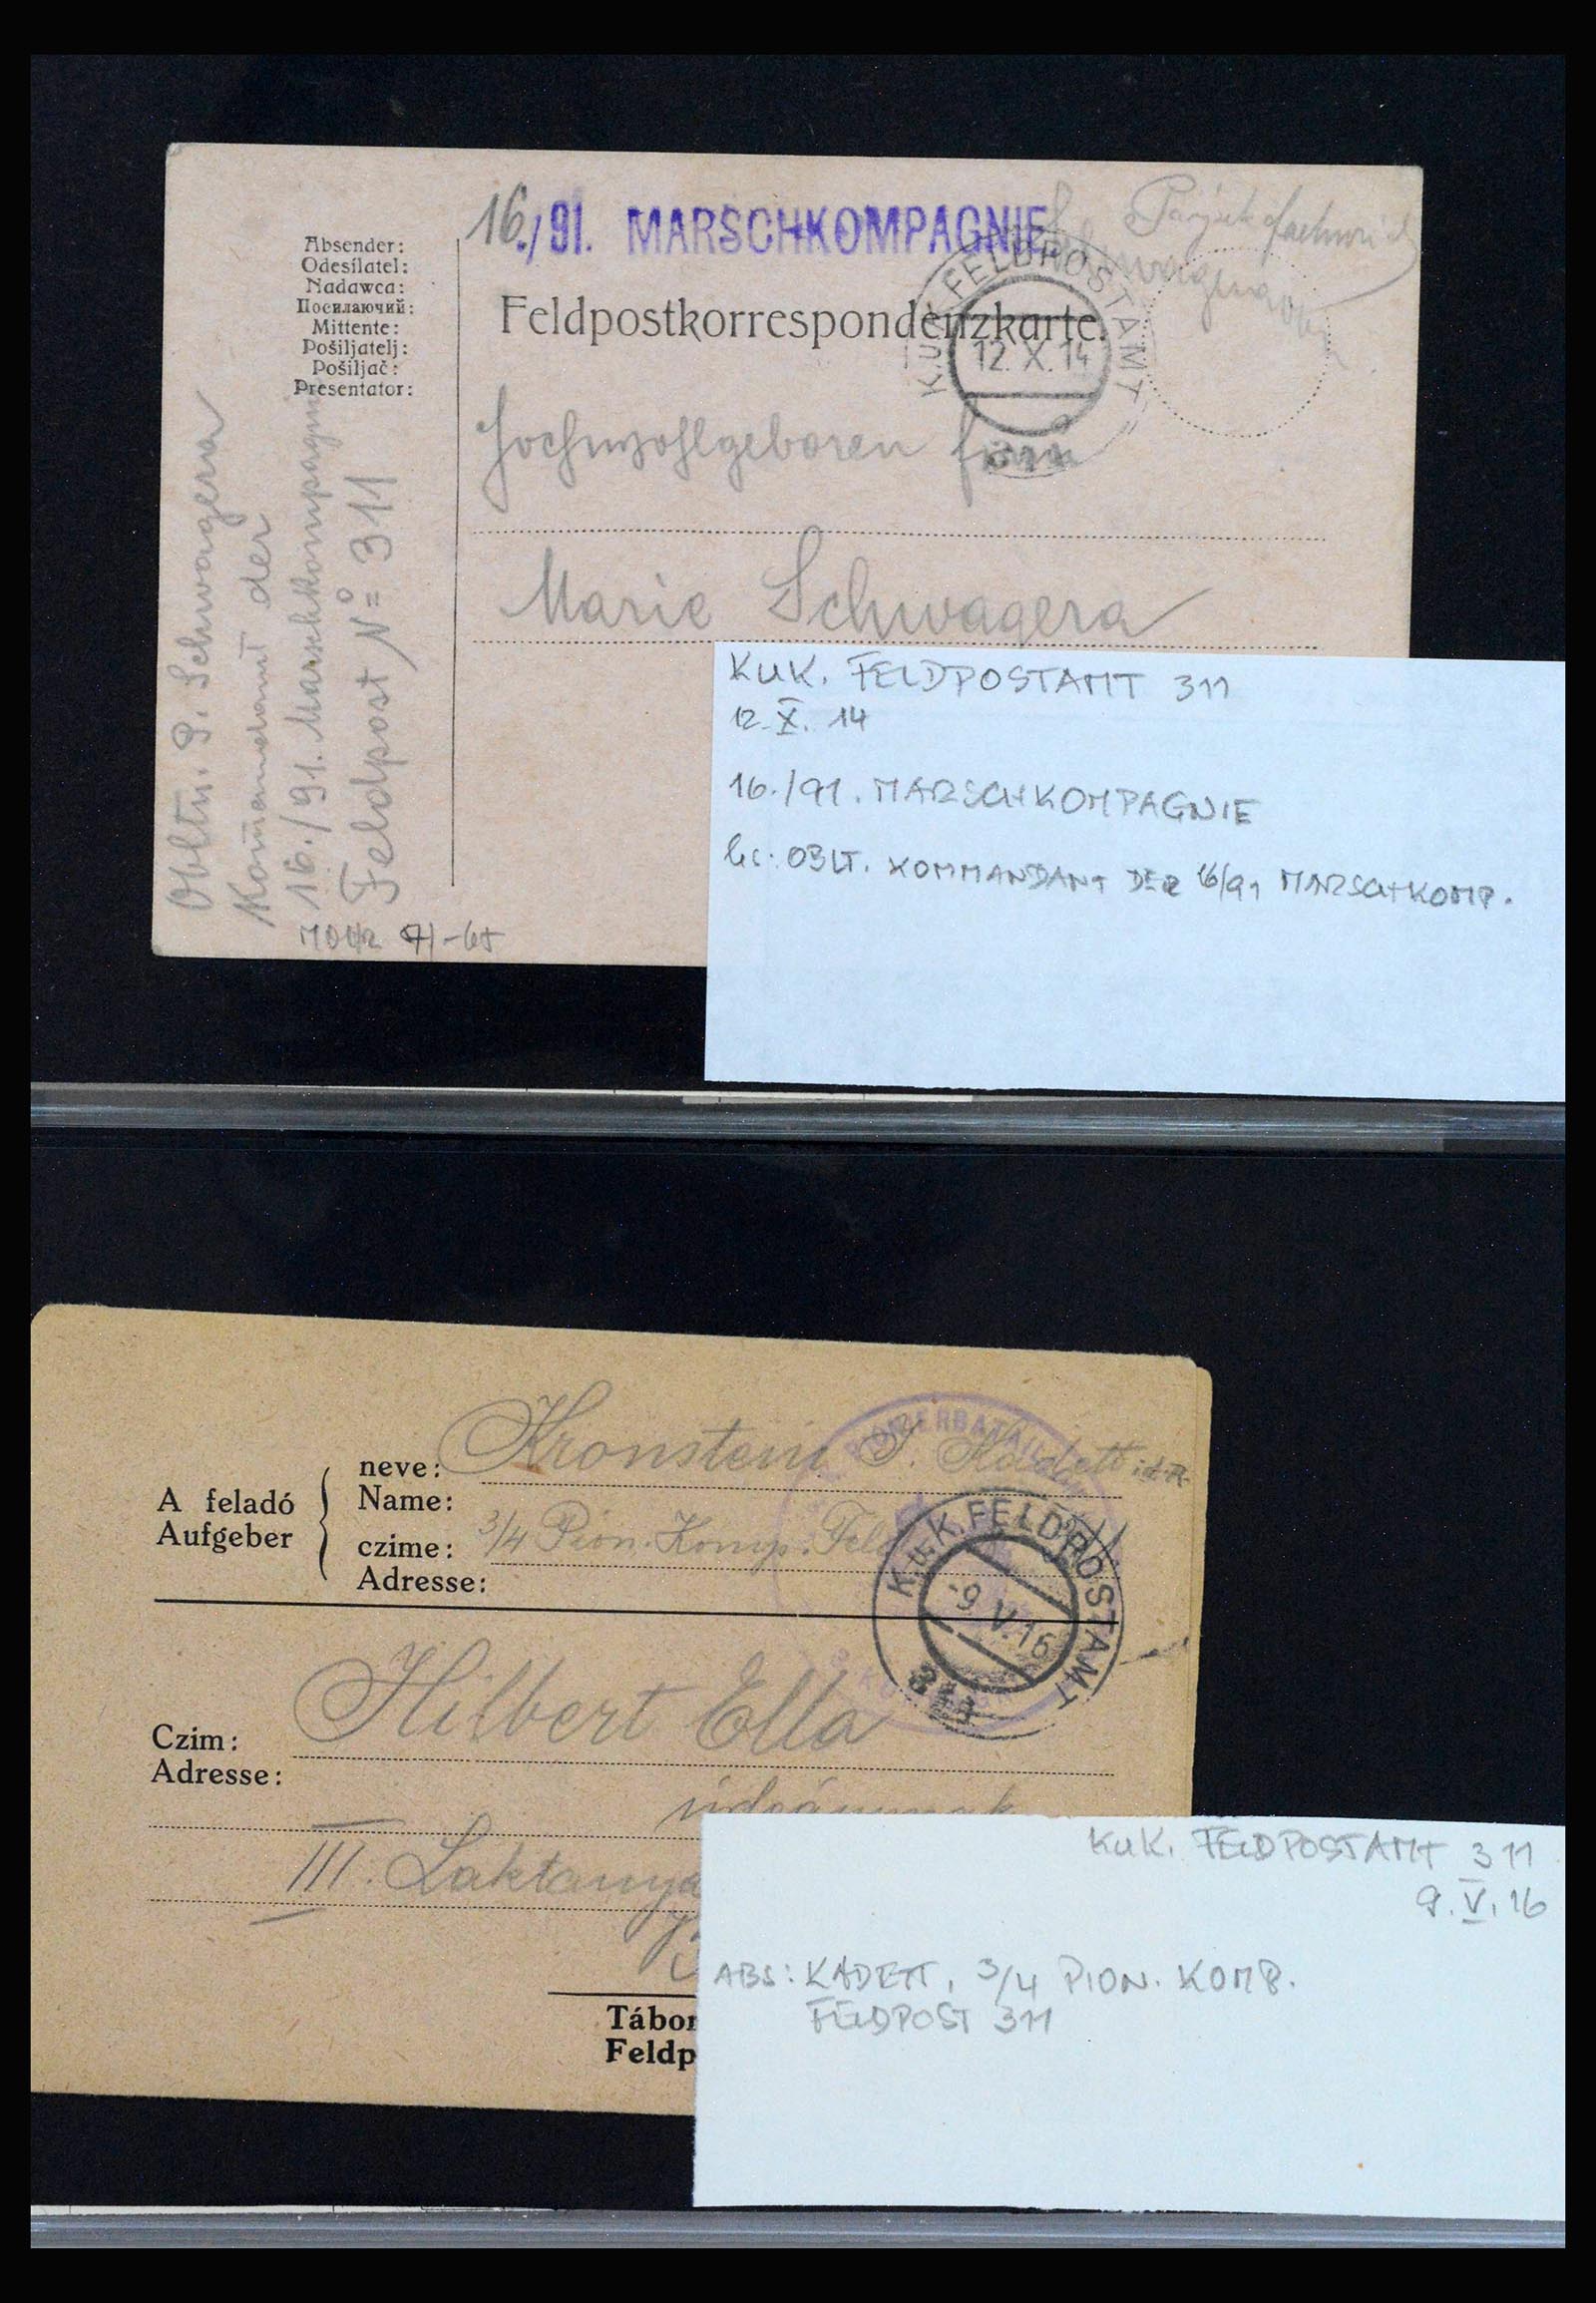 16./91. MARSCHKOMPAGNIE
Absender:
Odesílatel:
Nadawca:
Посилаючий:
Mittente:
Pošiljatelj:
Pošiljač:
Presentator:
Feldpostkorrespondenzkarte.
K.u.K. FELDPOSTAMT
12. X. 14
311
Hochwohlgeboren
Marie Schwagera
Obltn. P. Schwagera
Kom̄andant der
16./91. Marschkompagnie
Feldpost No 311
KUK. FELDPOSTAMT 311
12. X. 14
16./91. MARSCHKOMPAGNIE
OBLT. KOMMANDANT DER 16/91 MARSCHKOMP.
A feladó
Aufgeber
neve:
Name:
Kronstein J. Kadett i.d.R.
czime:
Adresse:
3/4 Pion. Komp. Feld
K.u.K. FELDPOSTAMT
-9. V. 16
311
Czim:
Adresse:
Hilbert Ella
III. Laktanya
Tábor
Feldp
KuK. FELDPOSTAMT 311
9. V. 16
ABS: KADETT, 3/4 PION. KOMP.
FELDPOST 311